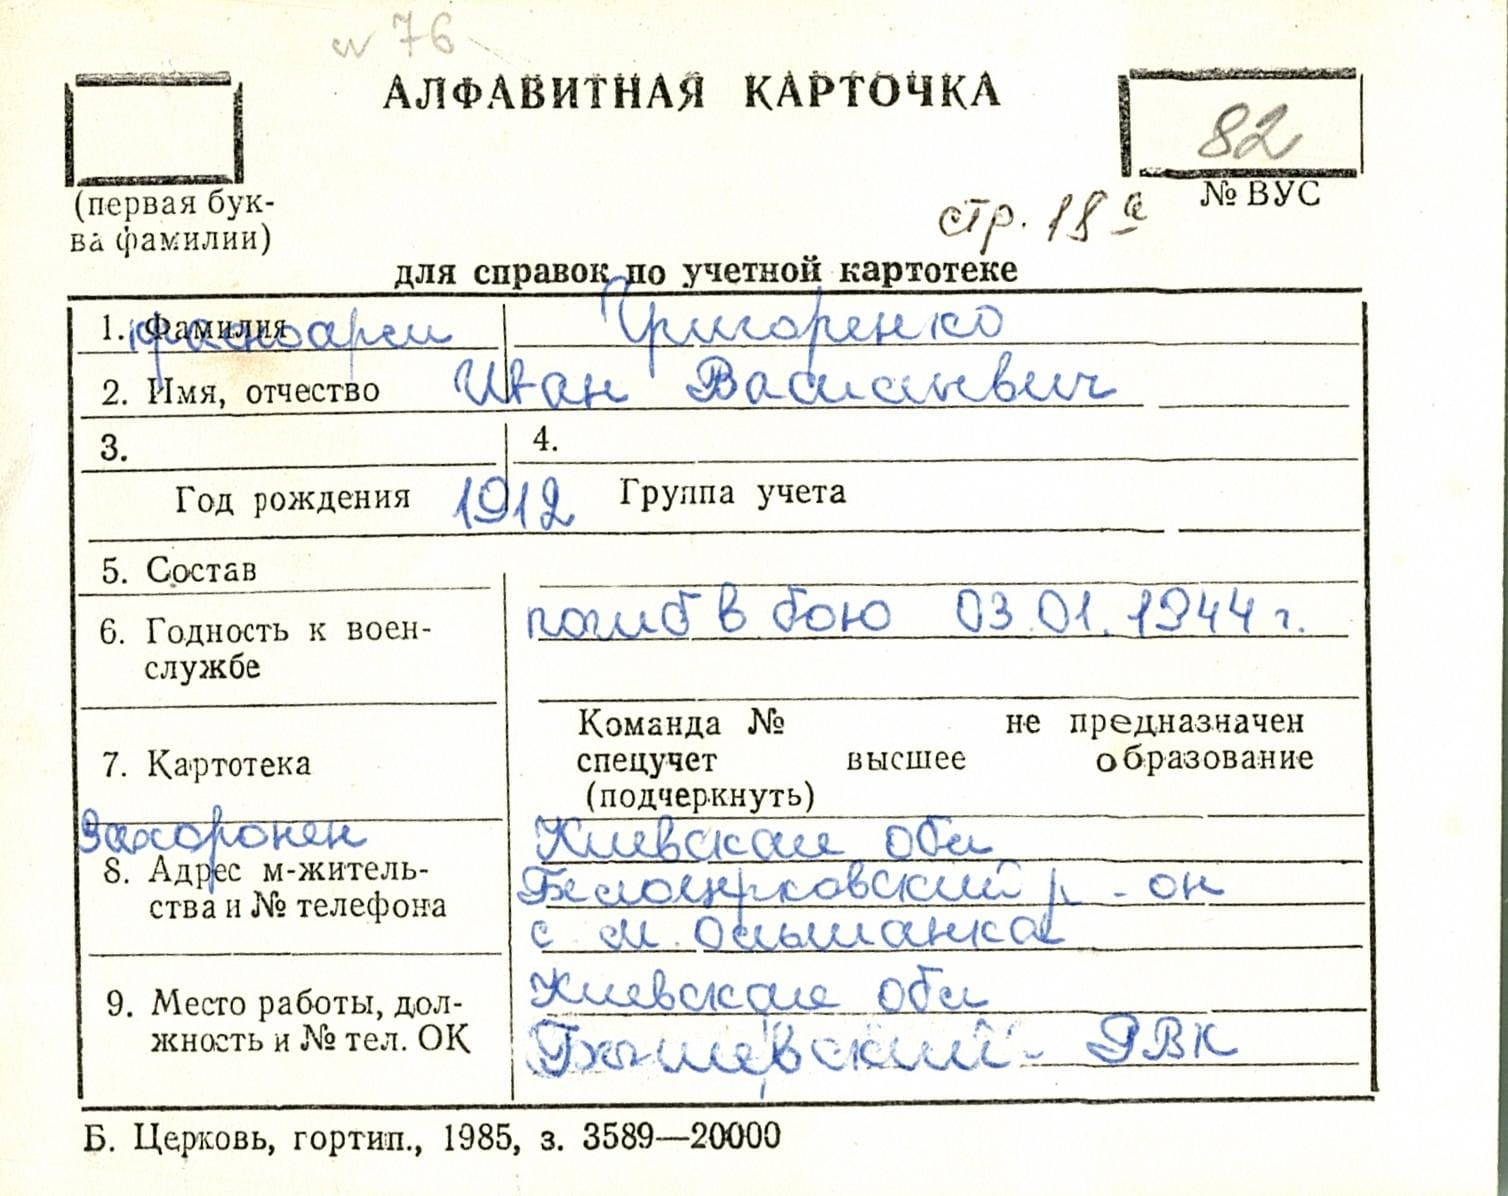 76
АЛФАВИТНАЯ КАРТОЧКА
82
(первая бук-
ва фамилии)
№ ВУС
стр. 18 а
для справок по учетной картотеке
1. Фамилия
красноарм
Григоренко
2. Имя, отчество Иван Васильевич
3.
4.
Год рождения 1912 Группа учета
5. Состав
6. Годность к воен-
службе
погиб в бою 03.01.1944 г.
7. Картотека
Команда № не предназначен
спецучет высшее образование
(подчеркнуть)
Захоронен
8. Адрес м-житель-
ства и № телефона
Киевская обл
Белоцерковский р-он
с м. Ольшанка
9. Место работы, дол-
жность и № тел. ОК
Киевская обл
РВК
Б. Церковь, гортип., 1985, з. 3589—20000